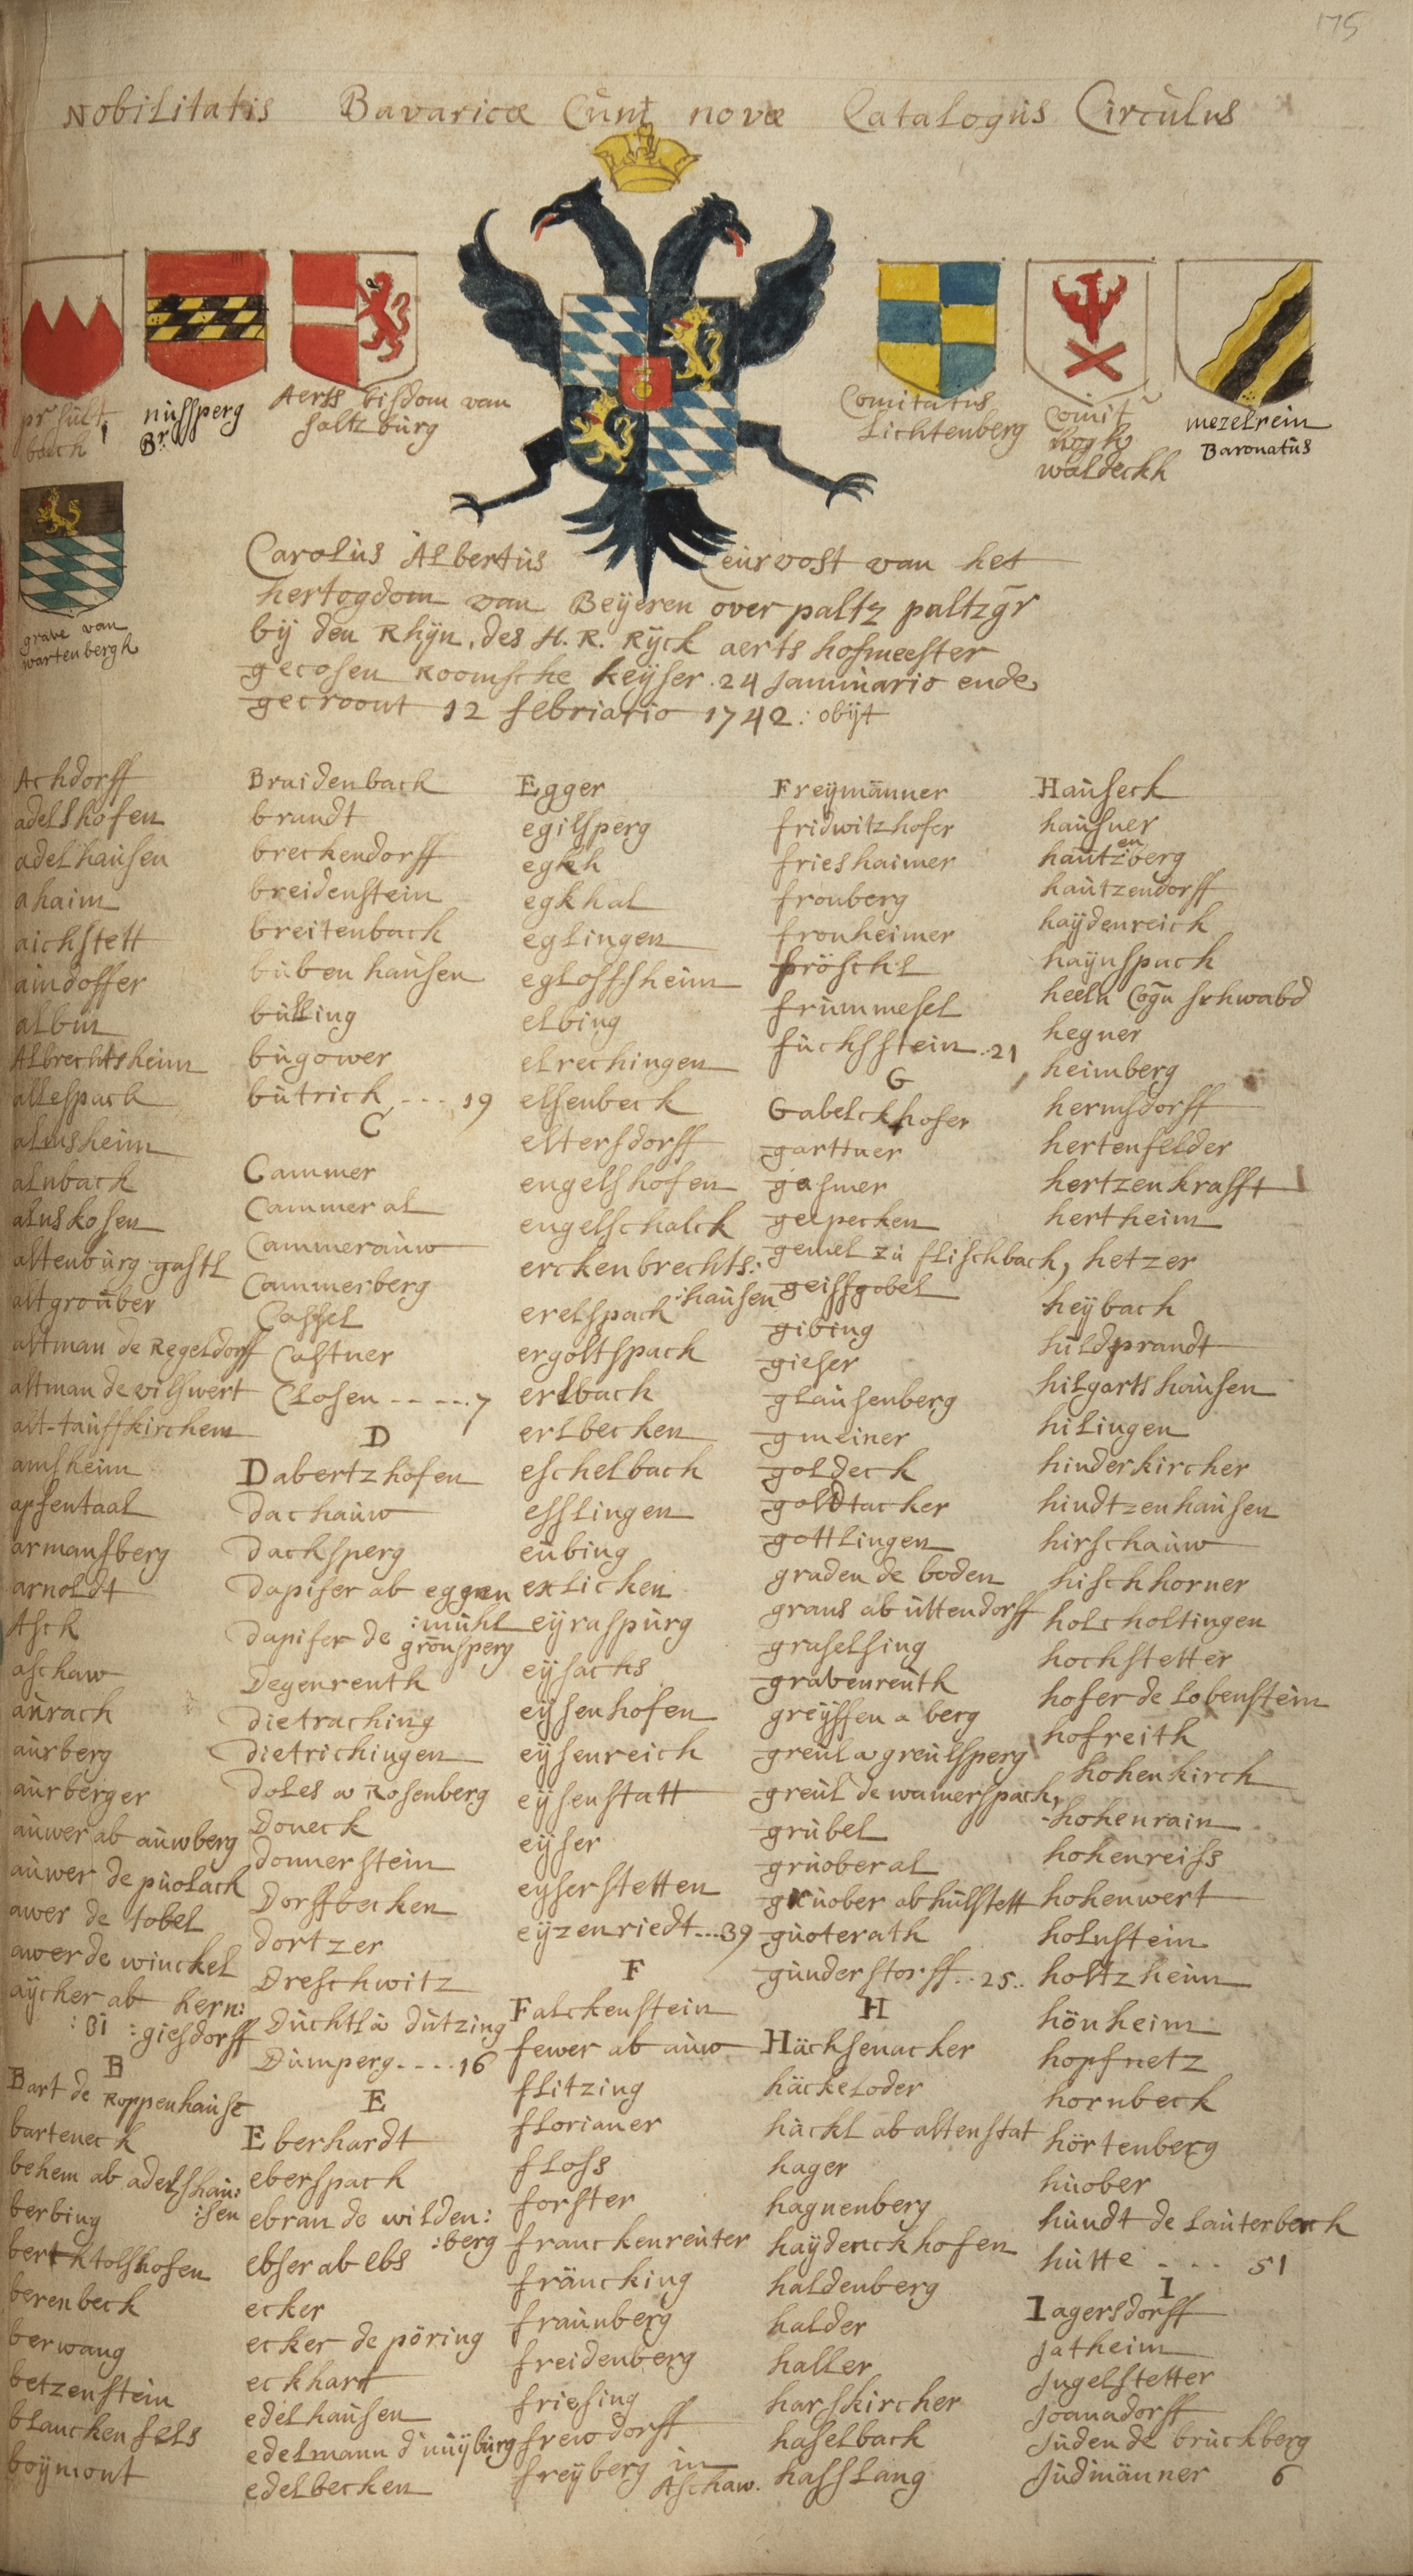 175
Nobilitatis Bavaricæ Cunt novæ Catalogus Circulus
nussperg
Br.
Aerss bisdom van
saltzburg
Comitatus
Lichtenberg
Comit
hogh
waldeckh
mezelrein
Baronatus
grave van
wartenbergh
Carolus Albertus Ceurvost van het
hertogdom van Beyeren over paltz paltzgr
by den Rhyn, des H. R. Ryck aerts hofmeester
gecosen Roomsche keyser .24 Januuario ende
gecroont 12 febriario 1742 : obyt
Achdorff
adelshofen
adelhausen
ahaim
aichstett
aindoffer
albm
Albrechtsheim
allespach
almsheim
alnback
alnskofen
altenburg gastl
altgrouber
altman de Regeldorff
altman de vilswert
alt-tauffkirchem
amsheim
apfentaal
armansberg
arnoldt
Asck
aschaw
aurach
aurberg
aurberger
auwer ab auwberg
auwer de puolach
awer de tobel
awer de winckel
aycher ab hern:
: 31 : giesdorff
B
Bart de Roppenhause
barteneck
behem ab adelshau:
:sen
berbing
berktolshofen
berenbeck
berwang
betzenstein
blanckenfels
boymont
Braidenbach
brandt
breckendorff
breidenstein
breitenbach
bubenhausen
bulling
bugower
butrich - - - 19
C
Cammer
Cammeral
Cammerauw
Cammerberg
Cassel
Castner
Closen - - - - 7
D
Dabertzhofen
Dachauw
Dachsperg
Dapifer ab eggen
:muhl
Dapifer de gronsperg
Degenreuth
dietraching
dietrichingen
doles a Rosenberg
Doneck
donnerstein
Dorffbecken
dortzer
Dreschwitz
Duchtl a dutzing
Dumperg - - - - 16
E
Eberhardt
eberspach
ebran de wilden:
:berg
ebser ab ebs
ecker
ecker de pöring
eckhart
edelhausen
edelmann d'nuyburg
edelbecken
Egger
egilsperg
egkh
egkhal
eglingen
egloffsheim
elbing
elrechingen
elsenbeck
eltersdorff
engelshofen
engelschalck
erckenbrechts:
:hausen
erelspach
ergoltspach
erlbach
erlbecken
eschelbach
esslingen
eubing
exlicken
eyraspurg
eysachs
eysenhofen
eysenreich
eysenstatt
eyser
eyserstetten
eyzenriedt - - - 39
F
Falckenstein
fewer ab auw
flitzing
florianer
floss
forster
franckenreuter
fräncking
fraunberg
freidenberg
friesing
frewdorff
freyberg in
Aschaw.
Freymänner
fridwitzhofer
frieshaimer
fronberg
fronheimer
fröschl
frummesel
fuchsstein . 21
G
Gabelckhofer
garttner
gasner
gelpecken
gemel zu flischbach,
geissgobel
gibing
gieser
glausenberg
gmeiner
goldeck
goldtacker
gottlingen
graden de boden
grans ab uttendorff
graselsing
grabenreuth
greyffen a berg
greul a greulsperg
greul de wamerspach,
grubel
gruoberal
gruober ab hulstett
guoterath
gunderstorff . . 25 . .
H
Hächsenacker
häckeloder
häckl ab altenstat
hager
hagnenberg
haydenckhofen
haldenberg
halder
haller
harskircher
haselback
hasslang
Hauseck
hausner
hautzenberg
hautzendorff
haydenreich
haynspach
heeln Cogn schwabd
hegner
heimberg
hermsdorff
hertenfelder
hertzenkrafft
hertheim
hetzer
heybach
hildprandt
hilgartshausen
hilingen
hinderkircher
hindtzenhausen
hirschauw
hischhorner
holcholtingen
hochstetter
hofer de lobenstein
hofreith
hohenkirch
hohenrain
hohenreiss
hohenwert
holnstein
holtzheim
hönheim
hopfnetz
hornbeck
hörtenberg
huober
hundt de lauterbach
hutte - - - 51
I
Iagersdorff
Jatheim
Jugelstetter
Joanadorff
Juden de bruckberg
Judmänner 6